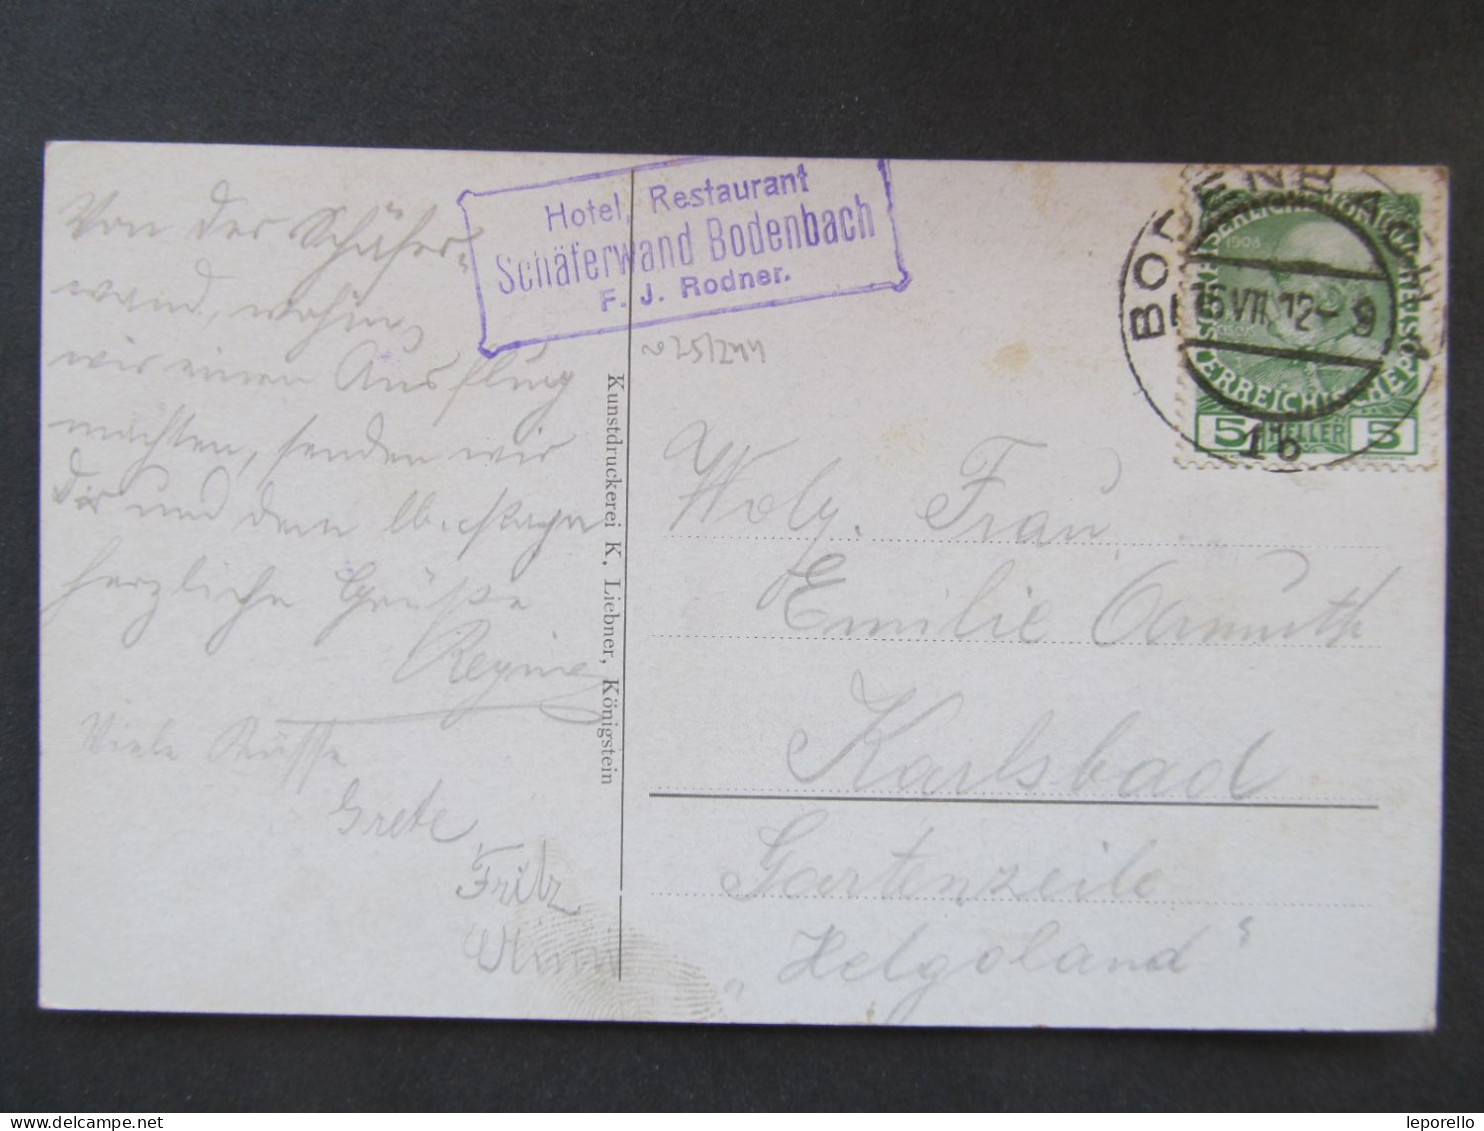 Von der Schäfer-
wand, wohin
wir einen Ausflug
machten, senden wir
Dir und dem
herzliche Grüße
Viele Küsse
Grete
Fritz
Hotel, Restaurant
Schäferwand Bodenbach
F. J. Rodner.
Kunstdruckerei K. Liebner, Königstein
BODENBACH
15 VII 12-9
1b
1908
5 HELLER 5
Wolg. Frau
Emilie Anmuth
Karlsbad
Gartenzeile
„Helgoland“
leporello